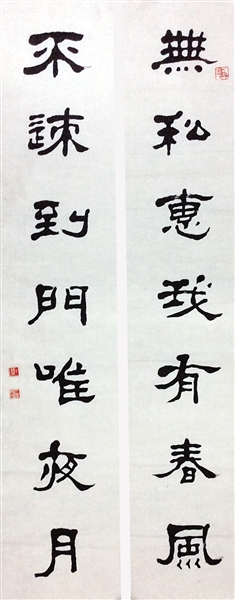 無私惠我有春風
不速到門唯夜月